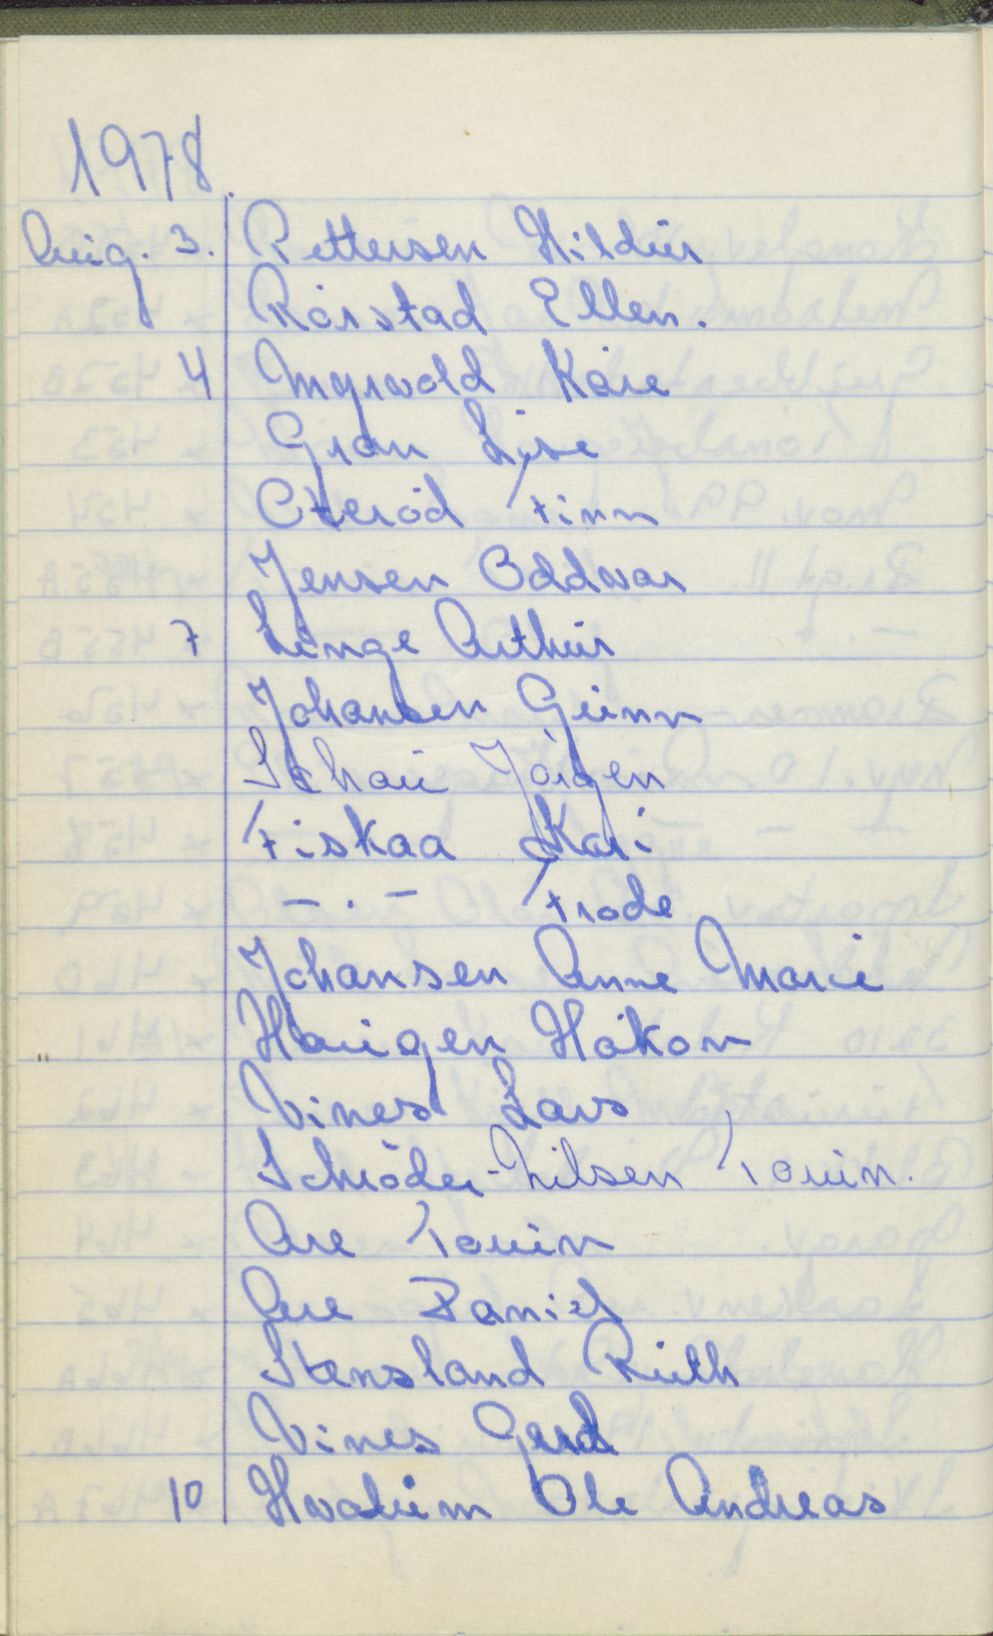 1978.
Aug. 3. Pettersen Hildur
Rørstad Ellen.
4 Myrvold Kåre
Gran Lise
Oterød Finn
Jensen Oddvar
7 Linge Arthur
Johansen Gunn
Schau Jørgen
Fiskaa Kari
— . — Frode
Johansen Anne Marie
Haugen Håkon
Vines Lars
Schrøder-Nilsen Torun.
Are Torun
Are Daniel
Stensland Ruth
Vines Gerd
10 Hvalum Ole Andreas